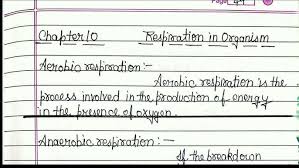 Page 44
Chapter 10 Respiration in Organism
Aerobic respiration:-
Aerobic respiration is the
process involved in the production of energy
in the presence of oxygen.
Anaerobic respiration:-
If the breakdown